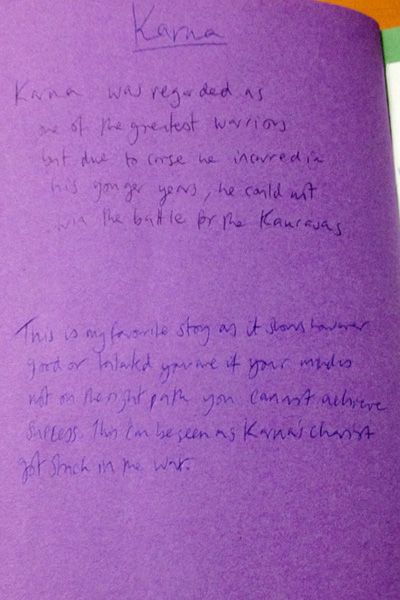 Karna
Karna was regarded as
one of the greatest warriors
but due to curse he incurred in
his yonger years, he could not
win the battle for the Kauravas
This is my favorite story as it shows however
good or talented you are if your mind is
not on the right path you cannot achieve
success. This can be seen as Karna's chariot
got stuck in the war.